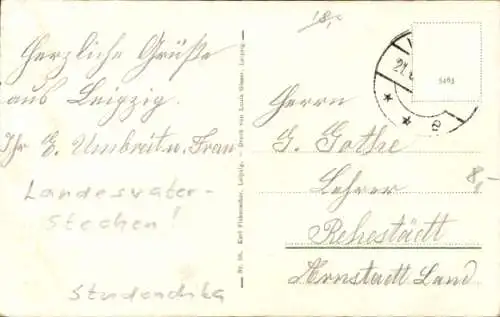 18,-
Herzliche Grüße
aus Leipzig.
Ihr E. Umbreit u. Frau
Landesvater-
Stechen!
Studentika
Nr. 50. Karl Leipzig. - Druck von Louis Leipzig.
5493
Herrn
G. Gothe
Lehrer
8,-
Rehestädt
Arnstadt Land.